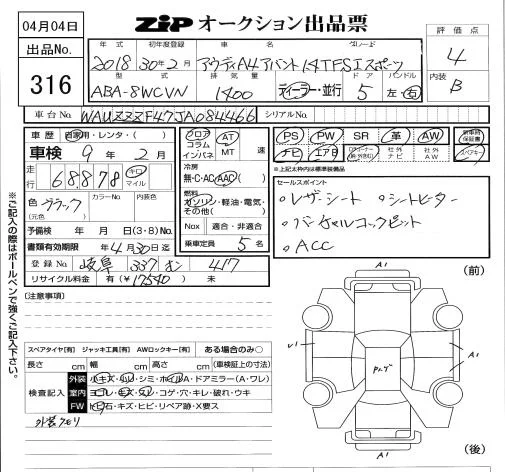 04月04日
ZiP オークション出品票
出品No.
316
評価点
4
内装
B
年式 初年度登録 車名 グレード
2018 30年2月 アウディA4アバント 1.4TFSIスポーツ
型式 排気量 ドア ハンドル
ABA-8WCVN 1400 ディーラー・並行 5 左・右
車台No. WAUZZZF47JA084466 シリアルNo.
車歴 自家用・レンタ・( )
車検 9年 2月
走行 68,878 キロ マイル
色 ブラック カラーNo. 内装色
(元色)
予備検 年 月 日(3・8)No.
書類有効期限 年4月30日迄
登録No. 岐阜 337 む 417
リサイクル料金 有(¥17540) 未
フロア コラム インパネ AT MT 速
冷房
無・C・AC・AAC( )
燃料
ガソリン・軽油・電気・その他( )
Nox 適合・非適合
乗車定員 5 名
PS PW SR 革 AW 新車時保証書
ナビ エアB 社外ナビ 社外AW スペアキー
※上記太枠内は標準装備品
セールスポイント
・レザーシート ・シートヒーター
・バーチャルコックピット
・ACC
※ご記入の際はボールペンで強くご記入下さい。
[注意事項]
スペアタイヤ[有] ジャッキ工具[有] AWロックキー[有] ある場合のみ○
長さ cm 幅 cm 高さ cm (車検証上の寸法)
検査記入
外装 小キズ・凹・シミ・ホイルA・ドアミラー(A・ワレ)
室内 ヨゴレ・キズ・スレ・コゲ・穴・キレ・破れ・ウキ
FW 飛石・キズ・ヒビ・リペア跡・X要ス
外装クモリ
(前)
A1
A1
A1
A1
(後)